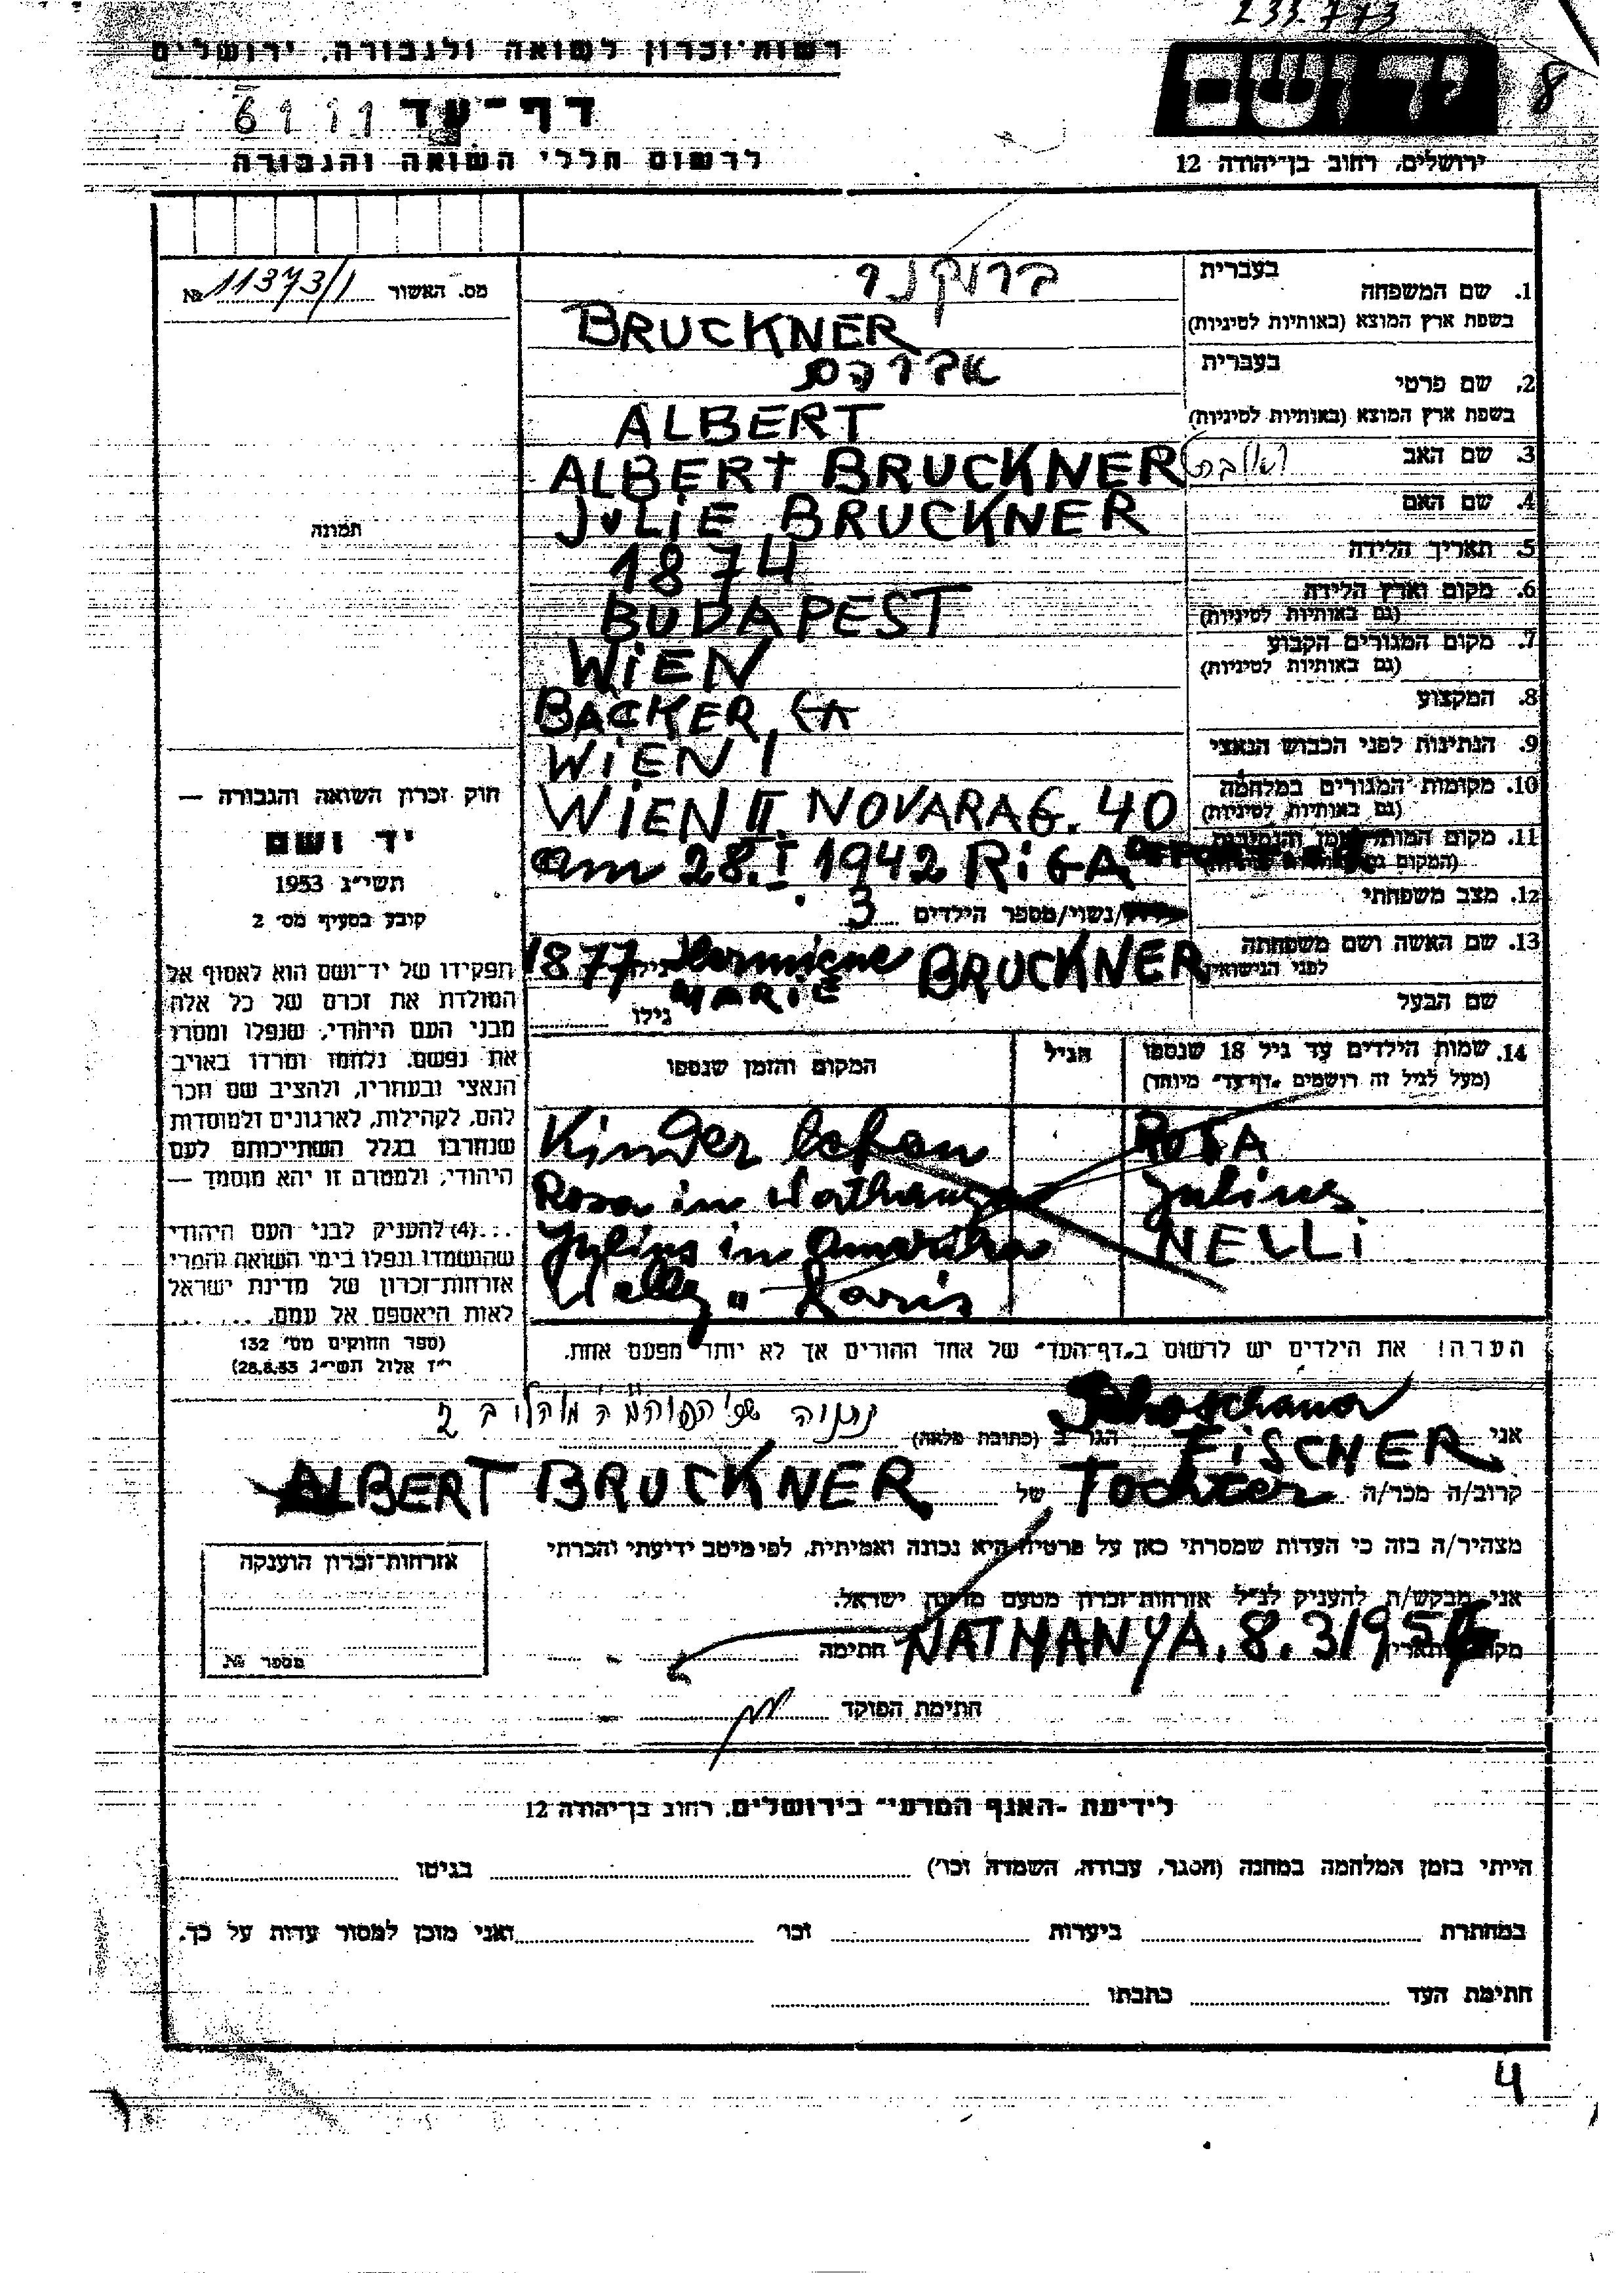 233.773
8
רשות־זכרון לשואה ולגבורה, ירושלים
דף־עד
לרשום חללי השואה והגבורה
יד ושם
ירושלים, רחוב בן־יהודה 12
מס. האשור № 11373/1
תמונה
חוק זכרון השואה והגבורה —
יד ושם
תשי״ג 1953
קובע בסעיף מס׳ 2
תפקידו של יד־ושם הוא לאסוף אל
המולדת את זכרם של כל אלה
מבני העם היהודי, שנפלו ומסרו
את נפשם, נלחמו ומרדו באויב
הנאצי ובעוזריו, ולהציב שם וזכר
להם, לקהילות, לארגונים ולמוסדות
שנחרבו בגלל השתייכותם לעם
היהודי, ולמטרה זו יהא מוסמך —
...(4) להעניק לבני העם היהודי
שהושמדו ונפלו בימי השואה והמרי
אזרחות־זכרון של מדינת ישראל
לאות היאספם אל עמם. ... ...
(ספר החוקים מס׳ 132
י״ז אלול תשי״ג 28.8.53)
1. שם המשפחה בעברית ברוקנר
בשפת ארץ המוצא (באותיות לטיניות) BRUCKNER
2. שם פרטי בעברית אברהם
בשפת ארץ המוצא (באותיות לטיניות) ALBERT
3. שם האב ALBERT BRUCKNER
4. שם האם JULIE BRUCKNER
5. תאריך הלידה 1874
6. מקום וארץ הלידה (גם באותיות לטיניות) BUDAPEST
7. מקום המגורים הקבוע (גם באותיות לטיניות) WIEN
8. המקצוע BACKER
9. הנתינות לפני הכבוש הנאצי WIEN I
10. מקומות המגורים במלחמה (גם באותיות לטיניות) WIEN II. NOVARAG. 40
11. מקום המות, הזמן והנסיבות am 28. I 1942 RIGA
12. מצב משפחתי /נשוי/מספר הילדים 3
13. שם האשה ושם משפחתה לפני הנישואין BRUCKNER Hermine MARIE גילה 1877
שם הבעל גילו
14. שמות הילדים עד גיל 18 שנספו הגיל המקום והזמן שנספו
(מעל לגיל זה רושמים „דף־עד״ מיוחד)
ROSA Kinder leben
Julius Rosa in
NELLI Julius in Amerika
Nelly " Paris
הערה! את הילדים יש לרשום ב„דף־העד״ של אחד ההורים אך לא יותר מפעם אחת.
אני FISCHER הגר ב (כתובת מלאה) נתניה
קרוב/ה מכר/ה Tochter של ALBERT BRUCKNER
מצהיר/ה בזה כי העדות שמסרתי כאן על פרטיה היא נכונה ואמיתית, לפי מיטב ידיעתי והכרתי
אני מבקש/ת להעניק לנ״ל אזרחות־זכרון מטעם מדינת ישראל.
מקום ותאריך NATHANYA, 8.3.195 חתימה
חתימת הפוקד
אזרחות־זכרון הוענקה
מספר №
לידיעת „האגף המדעי״ בירושלים, רחוב בן־יהודה 12
הייתי בזמן המלחמה במחנה (הסגר, עבודה, השמדה וכו׳) בגיטו
במחתרת ביערות וכו׳ ואני מוכן למסור עדות על כך.
חתימת העד כתבתו
4